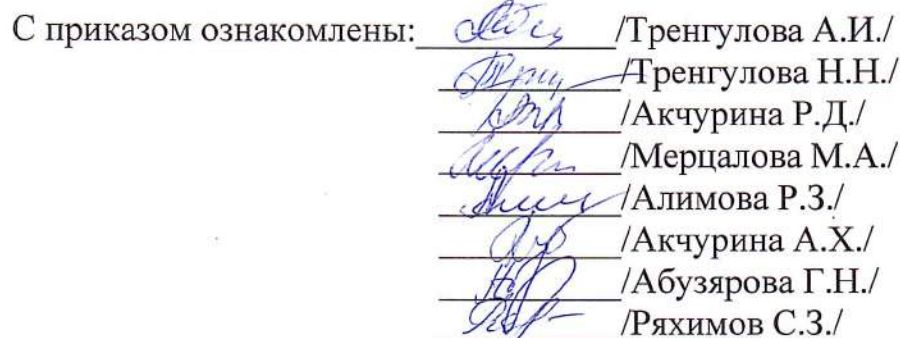 С приказом ознакомлены: /Тренгулова А.И./
/Тренгулова Н.Н./
/Акчурина Р.Д./
/Мерцалова М.А./
/Алимова Р.З./
/Акчурина А.Х./
/Абузярова Г.Н./
/Ряхимов С.З./